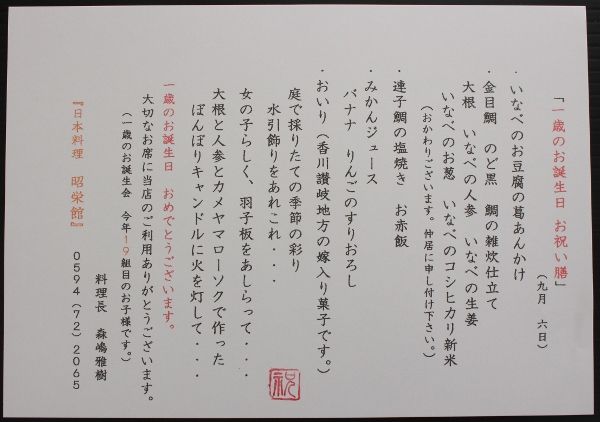 「一歳のお誕生日 お祝い膳」
(九月 六日)
・いなべのお豆腐の葛あんかけ
・金目鯛 のど黒 鯛の雑炊仕立て
大根 いなべの人参 いなべの生姜
いなべのお葱 いなべのコシヒカリ新米
(おかわりございます。仲居に申し付け下さい。)
・連子鯛の塩焼き お赤飯
・みかんジュース
バナナ りんごのすりおろし
・おいり(香川讃岐地方の嫁入り菓子です。)
庭で採りたての季節の彩り
水引飾りをあれこれ・・・
女の子らしく、羽子板をあしらって・・・・
大根と人参とカメヤマローソクで作った
ぼんぼりキャンドルに火を灯して・・・・
一歳のお誕生日 おめでとうございます。
大切なお席に当店のご利用ありがとうございます。
(一歳のお誕生会 今年19組目のお子様です。)
料理長 森嶋雅樹
『日本料理 昭栄館』 0594(72)2065
祝